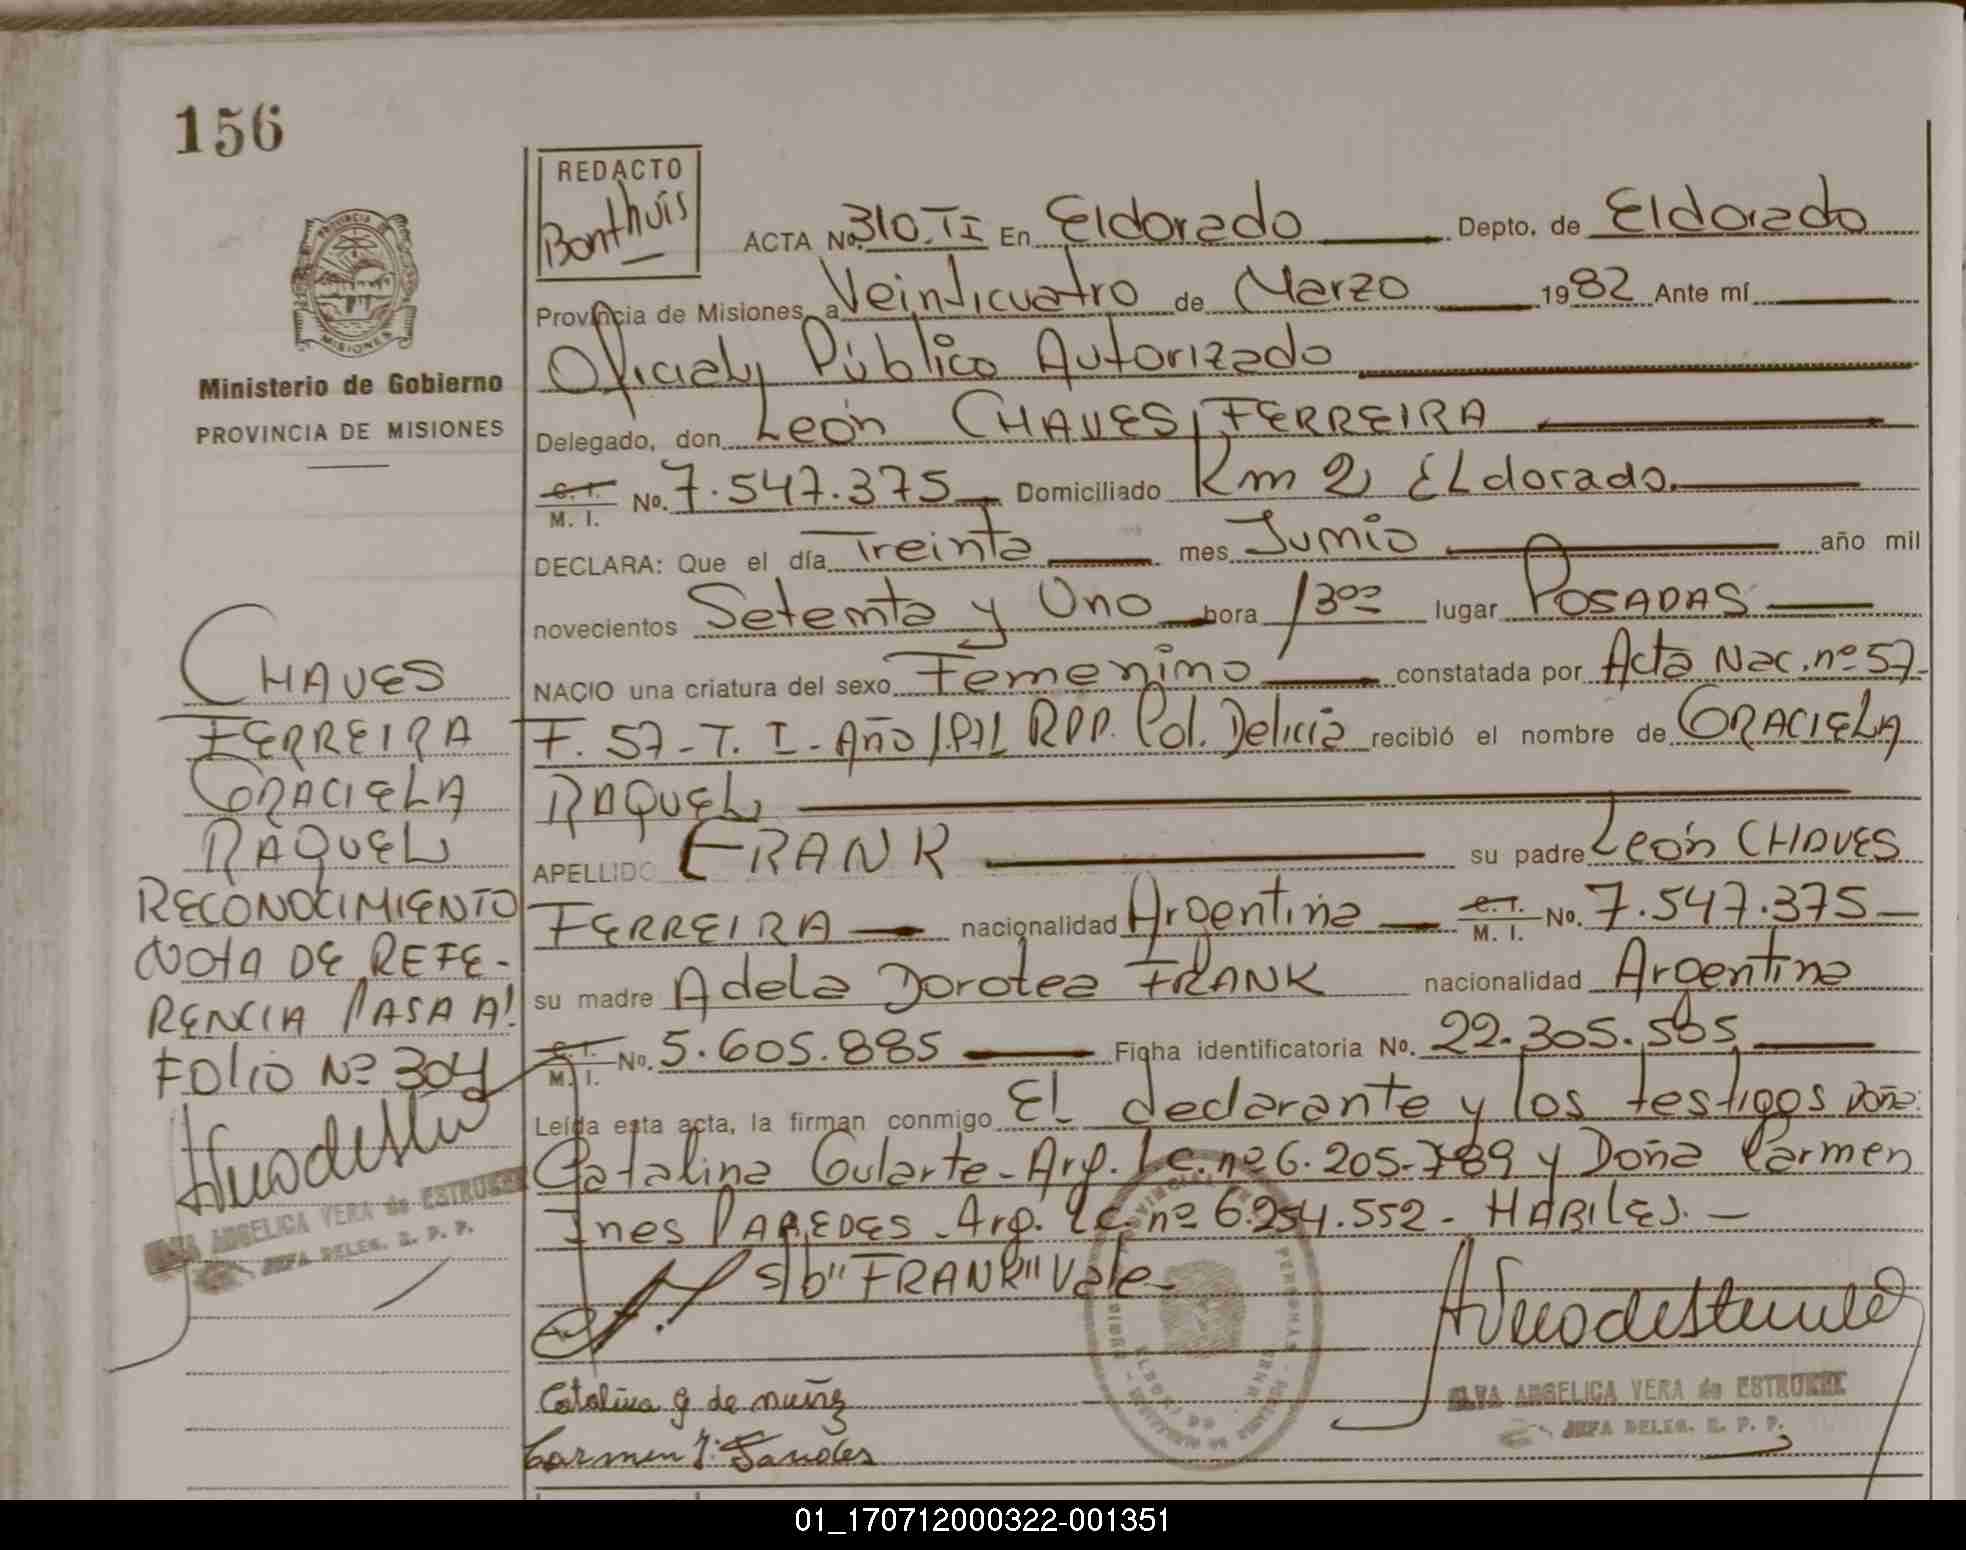 156
PROVINCIA DE
MISIONES
Ministerio de Gobierno
PROVINCIA DE MISIONES
CHAVES
FERREIRA
GRACIELA
RAQUEL
RECONOCIMIENTO
NOTA DE REFE-
RENCIA PASA Al
FOLIO Nº 304
ELVA ANGELICA VERA de ESTRUERE
JEFA DELEG. R. P. P.
REDACTO
Bonthuis
ACTA No. 310. TI En Eldorado Depto. de Eldorado
Provincia de Misiones, a Veinticuatro de Marzo 1982 Ante mí
Oficial Público Autorizado
Delegado, don León CHAVES FERREIRA
C. I. M. I. No. 7.547.375 Domiciliado Km 2 ELdorado.
DECLARA: Que el día Treinta mes Junio año mil
novecientos Setenta y Uno hora 13ºº lugar POSADAS
NACIO una criatura del sexo Femenino constatada por Acta Nac. nº 57-
F. 57 - T. I - Año 1.971 RPP. Col. Delicia recibió el nombre de GRACIELA
RAQUEL
APELLIDO FRANK su padre León CHAVES
FERREIRA nacionalidad Argentina C. I. M. I. No. 7.547.375
su madre Adela Dorotea FRANK nacionalidad Argentina
C. I. M. I. No. 5.605.885 Ficha identificatoria No. 22.305.505
Leída esta acta, la firman conmigo EL declarante y los testigos Doña:
Catalina Gularte - Arg. Lc. nº 6.205.789 y Doña Carmen
Ines PAREDES - Arg. Lc. nº 6.254.552 - HABILES. -
s/b "FRANK" Vale -
Catalina g de nuñz
Carmen I. Paredes
ELVA ANGELICA VERA de ESTRUERE
JEFA DELEG. R. P. P.
01_170712000322-001351